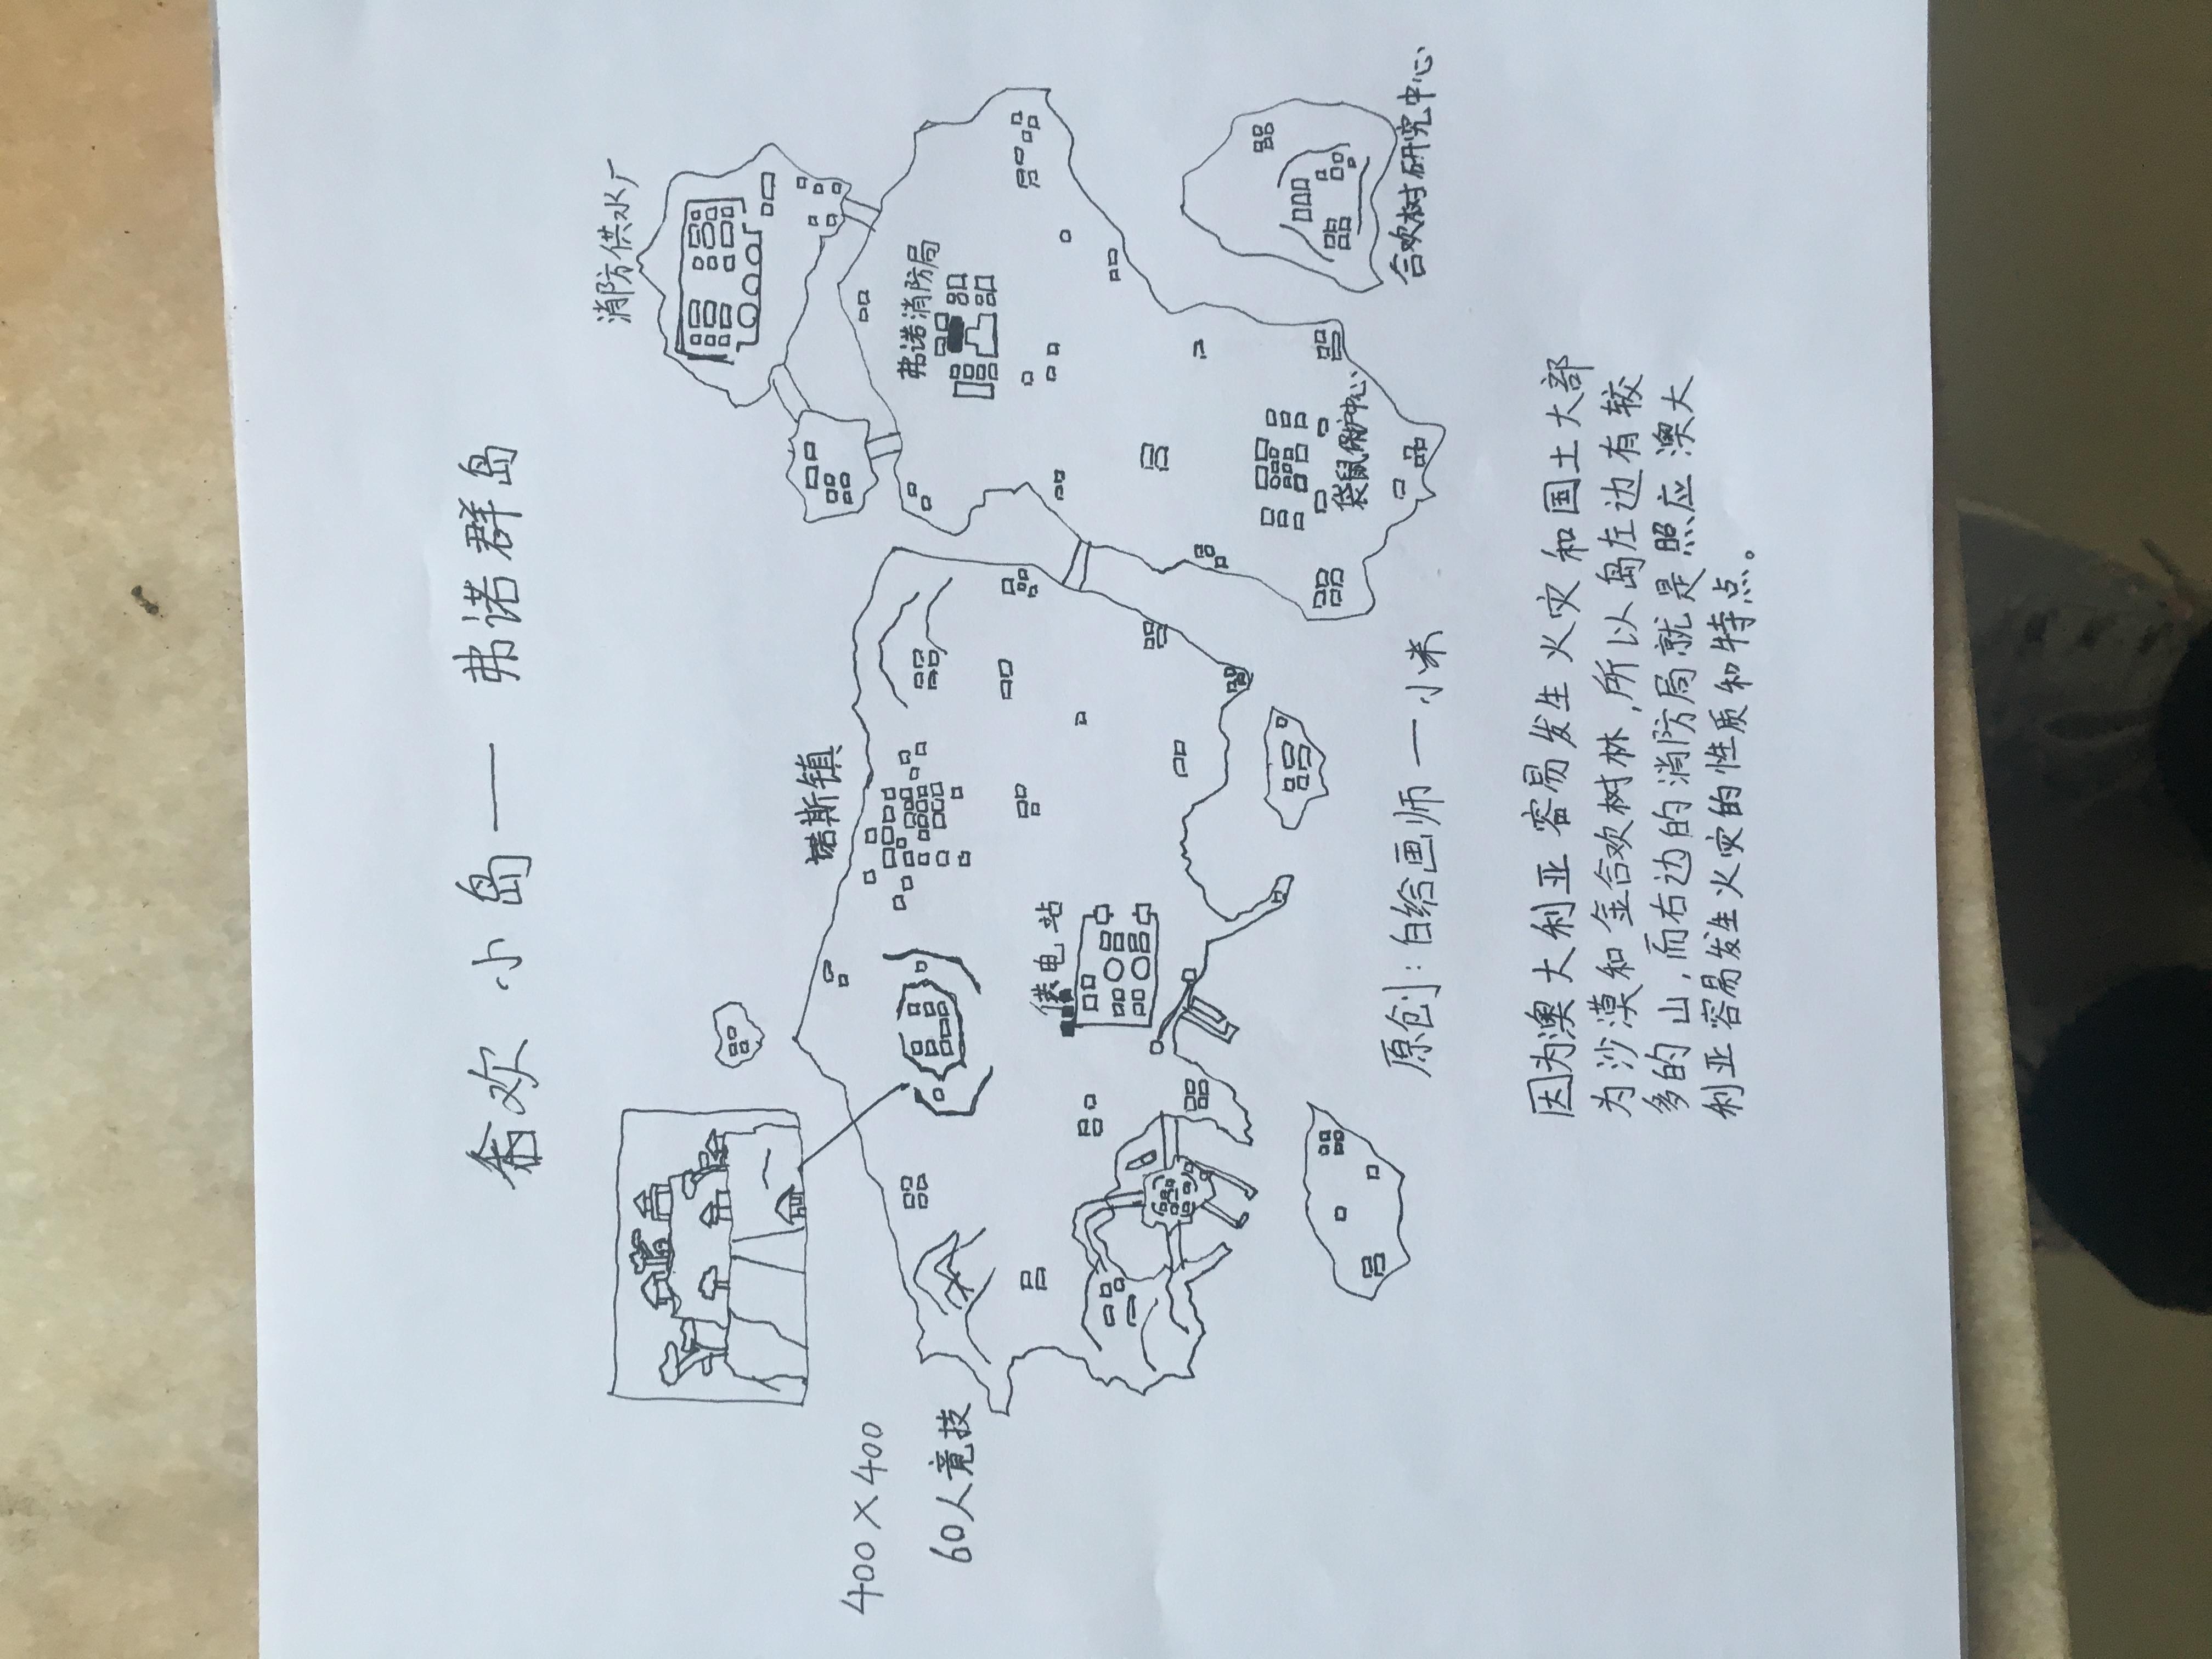 合欢小岛——弗诺群岛
消防供水厂
弗诺消防局
诺斯镇
400×400
60人竞技
供电站
袋鼠保护中心
合欢树研究中心
原创:白给画师—小米
因为澳大利亚容易发生火灾和国土大部
为沙漠和金合欢树林,所以岛左边有较
多的山,而右边的消防局就是照应澳大
利亚容易发生火灾的性质和特点。